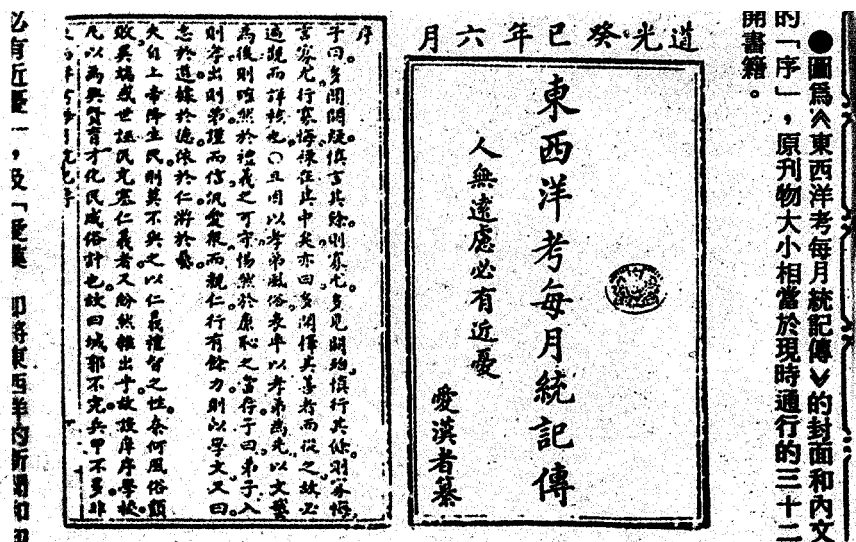 ●圖爲︽東西洋考每月統記傳︾的封面和內文
的「序」，原刊物大小相當於現時通行的三十二
開書籍。
道光癸巳年六月
東西洋考每月統記傳
人無遠慮必有近憂
愛漢者纂
序
子曰。多聞闕疑慎言其餘。則寡尤。多見闕殆慎行其餘。則寡悔
言寡尤行寡悔祿在其中矣。亦曰。多聞擇其善者而從之。故必
遍觀而詳核也。〇且因以孝弟風俗表率以孝弟為先。以文藝
為後。則曉然於禮義之可守。惕然於廉恥之當存。子曰。弟子入
則孝。出則弟。謹而信。汎愛眾。而親仁。行有餘力。則以學文。又曰
志於道。據於德。依於仁。游於藝
夫自上帝降生民。則莫不與之以仁義禮智之性。奈何風俗頹
敗。異端惑世誣民充塞仁義者。又紛然雜出乎。故設庠序學校
凡以為興賢育才化民成俗計也。故曰。城郭不完兵甲不多。非
必有近憂」，及「愛漢
即將東西洋的新聞和